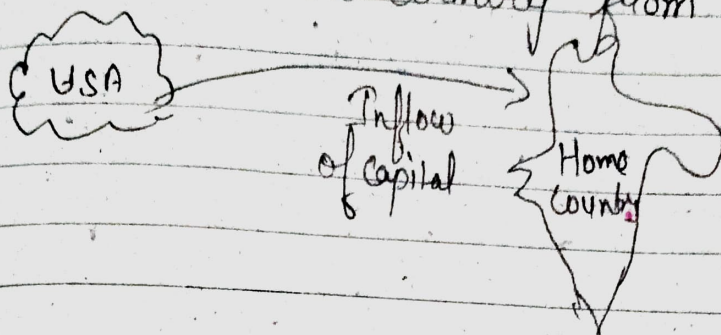 country from
USA
Inflow
of capital
Home
country